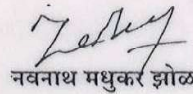 नवनाथ मधुकर झोळ